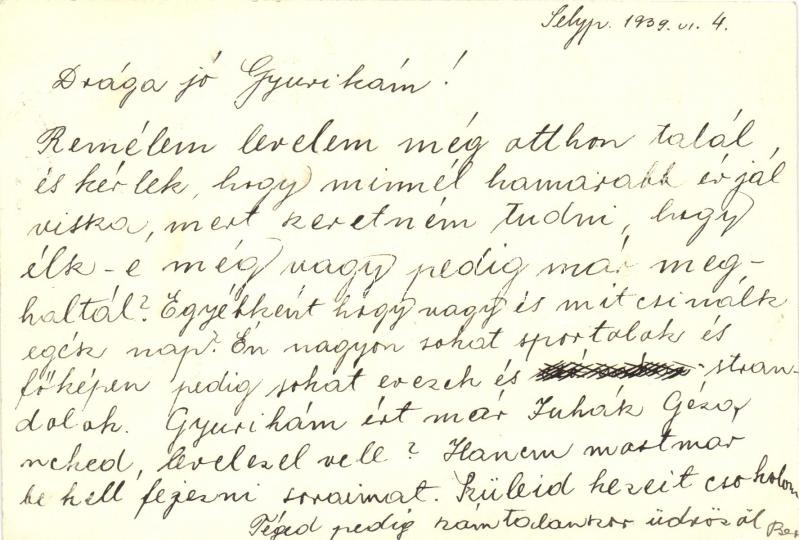 Selyp. 1939. VI. 4.
Drága jó Gyurikám!
Remélem levelem még otthon talál,
és kérlek, hogy minnél hamarabb érjál
viszka, mert szeretném tudni, hogy
élsz-e még vagy pedig már meg-
haltál? Egyébként hogy vagy és mit csinálsz
egész nap? Én nagyon sokat sportolok és
főképen pedig sokat evezek és stran-
dolok. Gyurikám írt már Juhász Géza
neked, levelezel vele? Hanem mostmár
be kell fejezni soraimat. Szüleid kezeit csókolom
Téged pedig számtalanszor üdvözöl